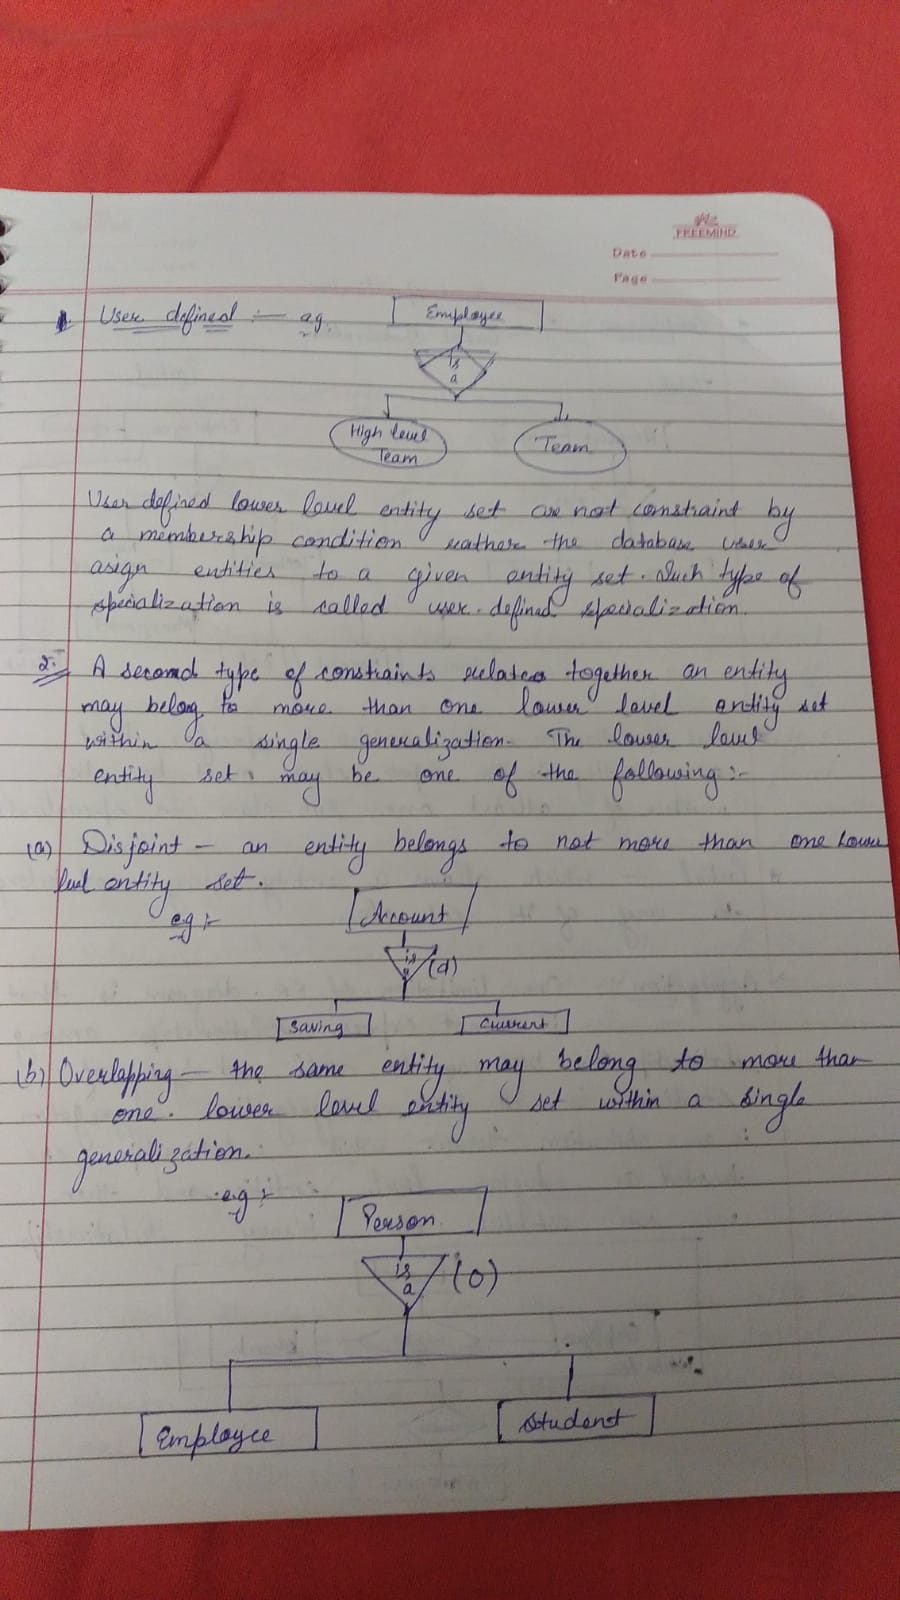 FREEMIND
Date
Page
User defined :- eg.
Employee
Is
a
High level
Team
Team
User defined lower level entity set are not constraint by
a membership condition rather the database user
asign entities to a given entity set. Such type of
specialization is called user-defined specialization.
2. A second type of constraints relates together an entity
may belong to more than one lower level entity set
within a single generalization. The lower level
entity set may be one of the following :-
(a) Disjoint - an entity belongs to not more than one lower
level entity set.
eg :-
Account
is
a
(d)
Saving
Current
(b) Overlapping - the same entity may belong to more than
one. lower level entity set within a single
generalization.
eg :-
Person
is
a
(o)
Employee
Student